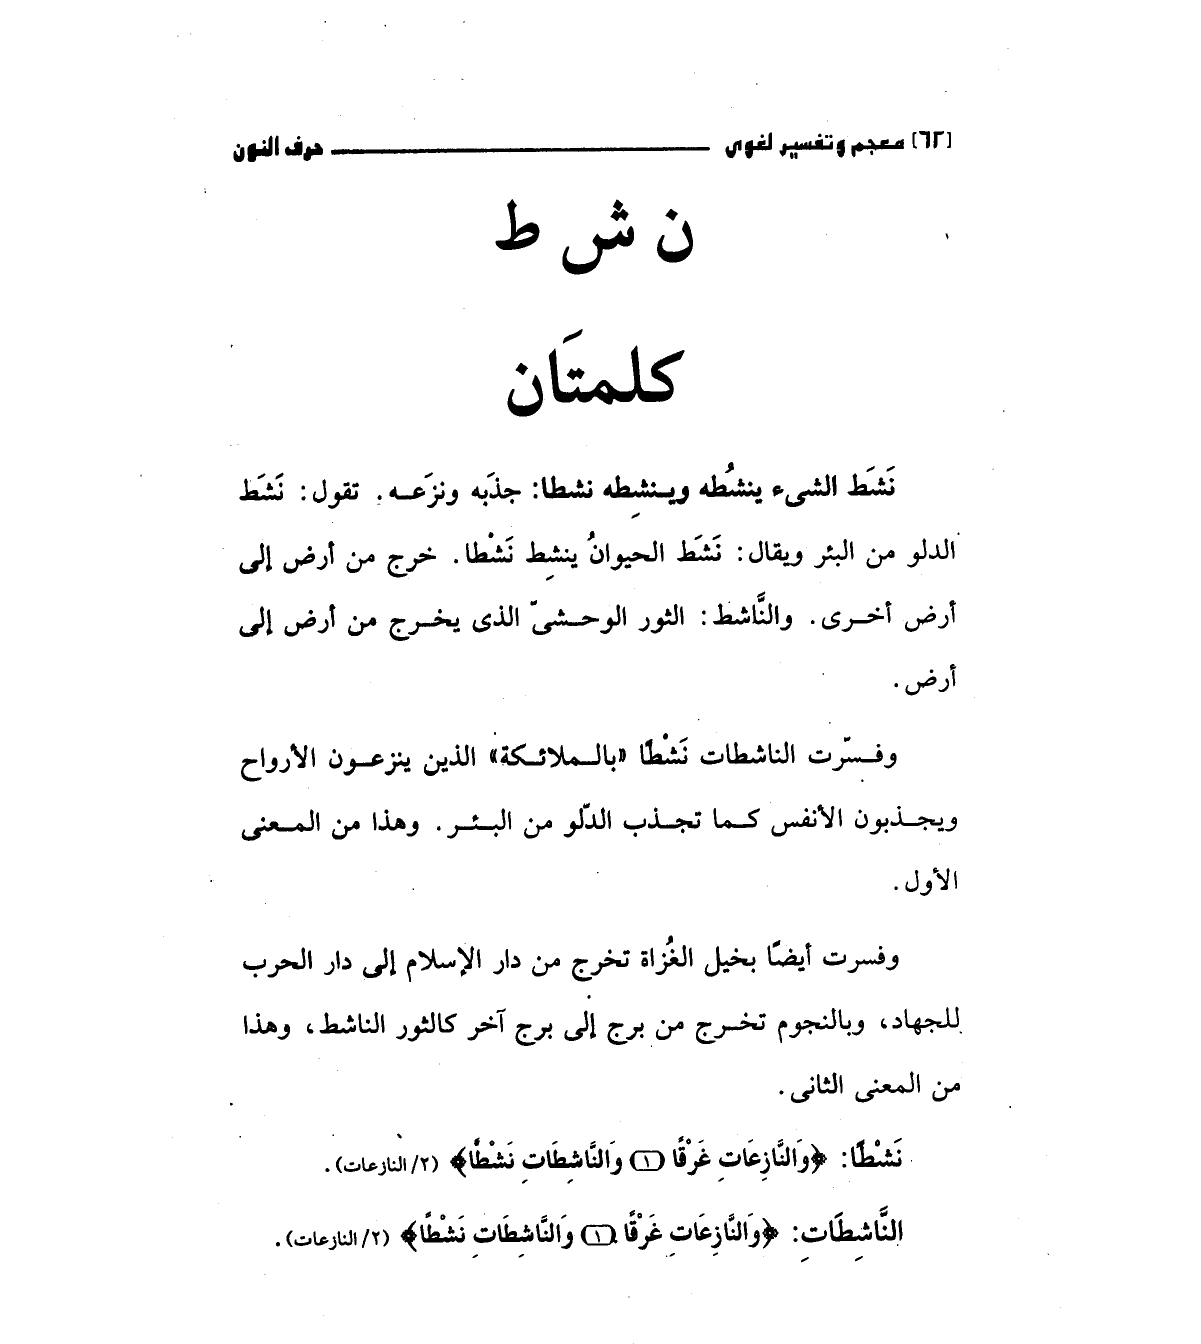 [٦٢] معجم وتفسير لغوى حرف النون
ن ش ط
كلمتَان
نَشَط الشىء ينشُطه وينشِطه نشطا: جذَبه ونزَعه. تقول: نَشَط
الدلو من البئر ويقال: نَشَط الحيوانُ ينشِط نَشْطا. خرج من أرض إلى
أرض أخرى. والنَّاشط: الثور الوحشىّ الذى يخرج من أرض إلى
أرض.
وفسّرت الناشطات نَشْطًا «بالملائكة» الذين ينزعون الأرواح
ويجذبون الأنفس كما تجذب الدّلو من البئر. وهذا من المعنى
الأول.
وفسرت أيضًا بخيل الغُزاة تخرج من دار الإسلام إلى دار الحرب
للجهاد، وبالنجوم تخرج من برج إلى برج آخر كالثور الناشط، وهذا
من المعنى الثانى.
نَشْطًا: ﴿وَالنَّازِعَاتِ غَرْقًا (١) وَالنَّاشِطَاتِ نَشْطًا﴾ (٢/ النازعات).
النَّاشِطَاتِ: ﴿وَالنَّازِعَاتِ غَرْقًا (١) وَالنَّاشِطَاتِ نَشْطًا﴾ (٢/ النازعات).